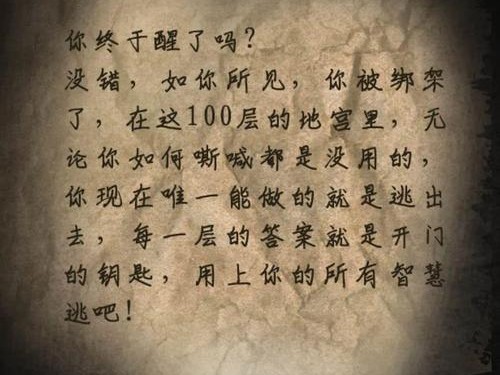 你终于醒了吗？
没错，如你所见，你被绑架
了，在这100层的地宫里，无
论你如何嘶喊都是没用的，
你现在唯一能做的就是逃出
去，每一层的答案就是开门
的钥匙，用上你的所有智慧
逃吧！